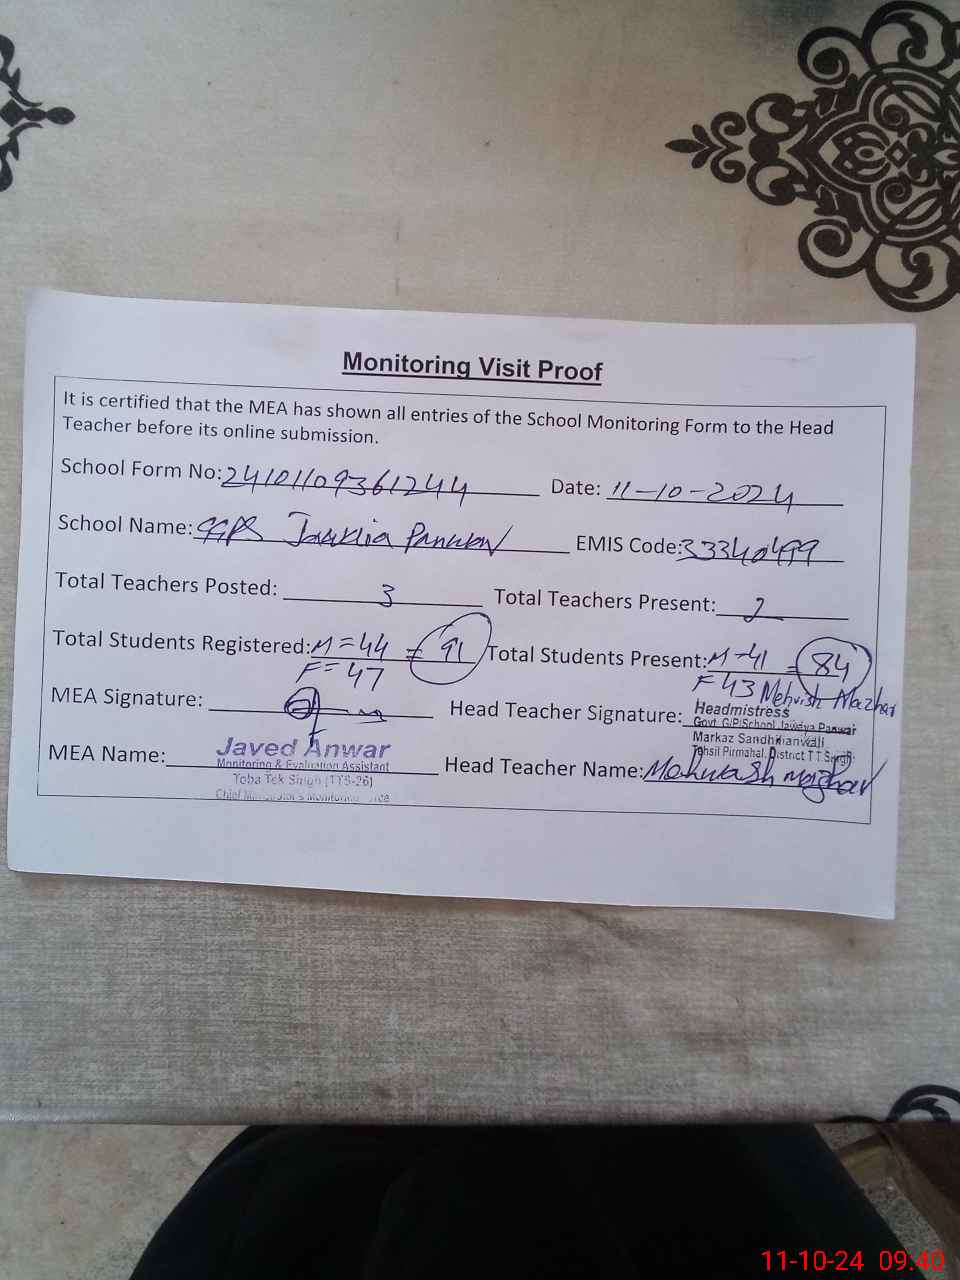 Monitoring Visit Proof
It is certified that the MEA has shown all entries of the School Monitoring Form to the Head
Teacher before its online submission.
School Form No: 24101109361244 Date: 11-10-2024
School Name: GGPS Panwar EMIS Code: 33340499
Total Teachers Posted: 3 Total Teachers Present: 2
Total Students Registered: M=44 = 91 Total Students Present: M-41 = 84
F=47 F 43 Mehvish Mazhar
MEA Signature: Head Teacher Signature:
Headmistress
Govt. G/P/School Jawdya Panwar
Markaz Sandhilianwali
Tehsil Pirmahal, District T.T.Singh.
MEA Name: Javed Anwar
Monitoring & Evaluation Assistant
Toba Tek Singh (TTS-26)
Chief Monitoring
Head Teacher Name: Mehwash Mazhar
11-10-24 09:40